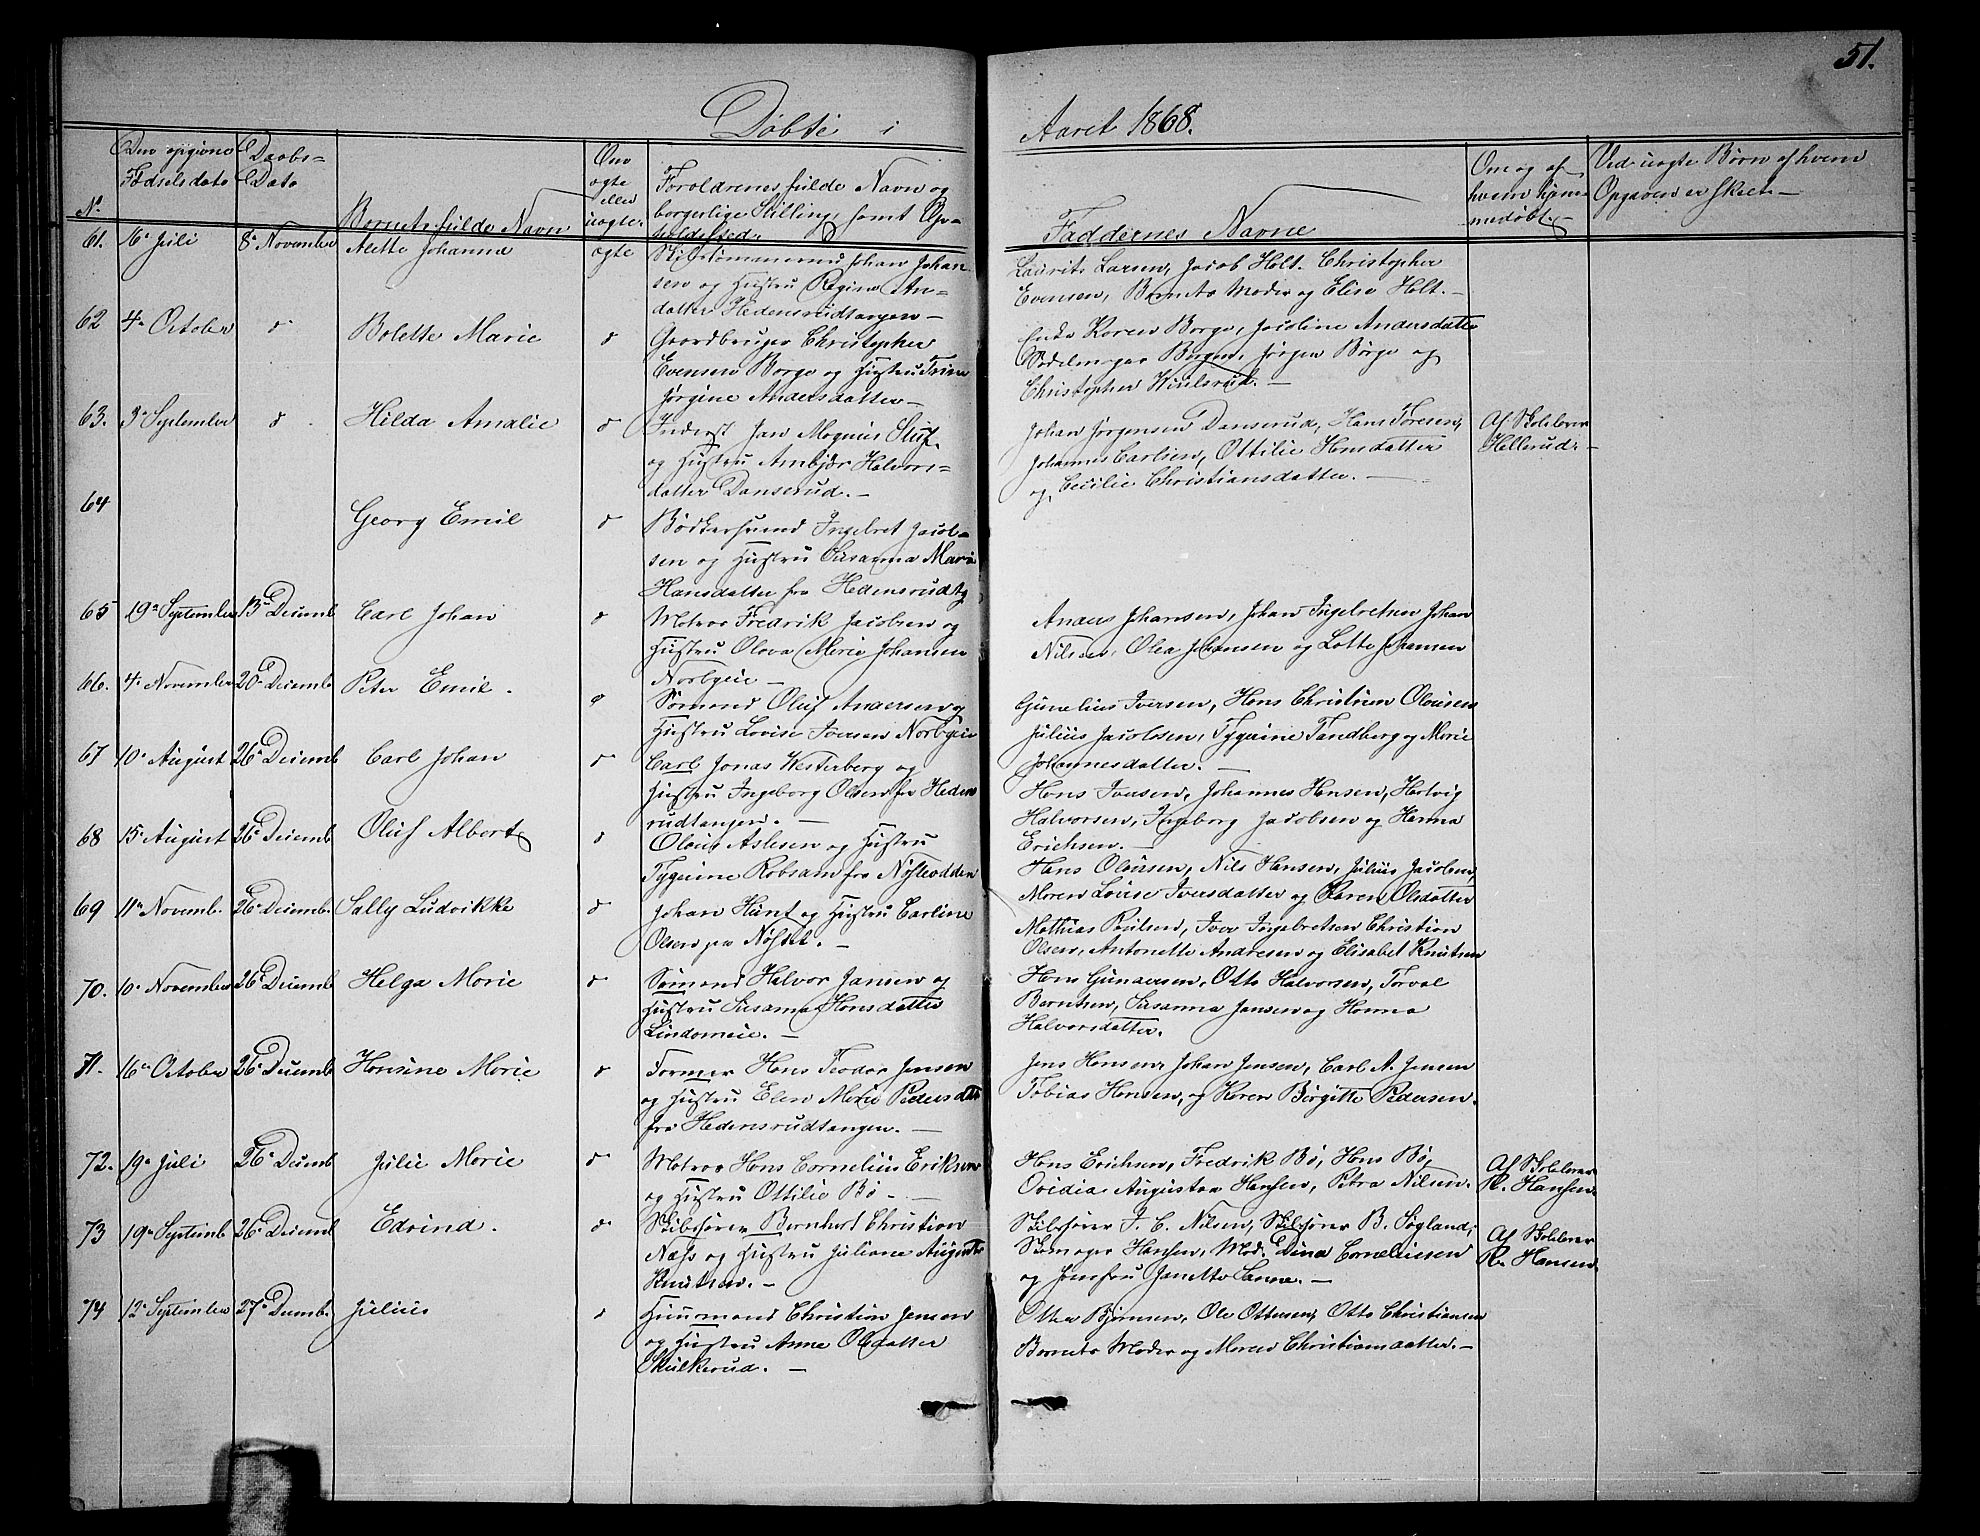 51.
Döbte i Aaret 1868.
Nº
Den opgivne Fødselsdato
Daabs-Dato
Barnets fulde Navn
Om ægte eller uægte.
Forældrenes fulde Navn og borgerlige Stilling, samt Opholdssted.
Faddernes Navne
Om og af hvem hjemmedøbt.
Ved uægte Børn af hvem Opgaven er skeet.
61. 6 Juli 8 November Alette Johanna ægte
Skibstømmermand Johan Johan-
sen og Hustru Regine An-
datter Hedensrudtangen
Laurits Larsen, Jacob Holt. Christopher
Evensen, Barnets Moder og Elise Holt.
62 4 October d Bolette Marie d
Gaardbruger Christopher
Evensen Borge og Hustru Trine
Jørgine Andersdatter
Enke Karen Borge, Jacoline Andersdatter
Borgen, Jørgen Borge og
Christopher
63. 3 September d Hilda Amalie d
Inderst Jan Magnus
og Hustru Halvors-
datter Danserud.
Johan Jørgensen Danserud, Hans Toresen,
Johannes Carlsen, Ottilie Hansdatter
og Cecilie Christiansdatter.
Af Skolelærer
Hellerud.
64 Georg Emil d
Bødkersvend Ingebret Jacob-
sen og Hustru Susanna Marie
Hansdatter fra Hedensrudtg
65 19 September 13 Decemb Carl Johan d
Matros Fredrik Jacobsen og
Hustru Olava Marie Johansen
Norbyeie
Anders Johansen, Johan Ingebretsen Johan
Nilsen, Olea Johansen og Lotte Johansen
66. 4 November 20 Decemb Peter Emil. d
Sømand Oluf Andersen og
Hustru Lovise Iversen Norbyeie
Gunelius Iversen, Hans Christian Olausen
Julius Jacobsen, Tygrine Tandberg og Marie
Johannesdatter.
67 10 August 26 Decemb Carl Johan d
Carl Jonas Westerberg og
Hustru Ingeborg Olsen fra Hedens
rudtangen.
Hans Iversen, Johannes Hansen, Helvig
Halvorsen, Ingeborg Jacobsen og Hanna
Erichsen.
68 15 August 26 Decemb Oluf Albert d
Olaus Aslesen og Hustru
Tygrine Robsam fra Nøsteodden
Hans Olausen, Nils Hansen, Julius Jacobsen,
Maren Lovise Iversdatter og Karen Olsdatter
69 11 Novemb. 26 Decemb. Sally Ludvikke d
Johan Hunt og Hustru Carline
Olsen paa Nøstet.
Mathias Poulsen, Iver Ingebretsen Christian
Olsen, Antonette Andresen og Elisabet Knutsen
70. 10 November 26 Decemb Helga Marie d
Sømand Halvor Jansen og
Hustru Susanna Hansdatter
Lindomeie.
Hans Gunnersen, Otto Halvorsen, Torval
Berntsen, Susanna Jansen og Hanna
Halvorsdatter.
71. 16 October 26 Decemb Hansine Marie d
Former Hans Teodor Jensen
og Hustru Elen Marie Pedersdat
fra Hedensrudtangen.
Jens Hansen, Johan Jensen, Carl A. Jensen
Tobias Hansen, og Karen Birgitte Pedersen.
72. 19 Juli 26 Decemb Julie Marie d
Matros Hans Cornelius Eriksen
og Hustru Ottilie Bø
Hans Erichsen, Fredrik Bø, Hans Bø,
Ovidia Augusta Hansen, Petra Nilsen.
Af Skolelærer
R. Hansen.
73 19 Septemb 26 Decemb Edvind. d
Skibsfører Bernhart Christian
Næss og Hustru Juliane Auguste
Knutsen.
Skibsfører J. C. Nilsen, Skibsfører B. Søgland,
Hansen, Mad. Dina Corneliussen
og Jomfru Janette Sanne.
Af Skolelærer
R. Hansen.
74 12 September 27 Decmb. Julius d
Huusmand Christian Jensen
og Hustru Anne Olsdatter
Skulkerud.
Otter Bjørnsen, Ole Ottersen, Otto Christiansen
Barnets Moder og Maren Christiansdatter.